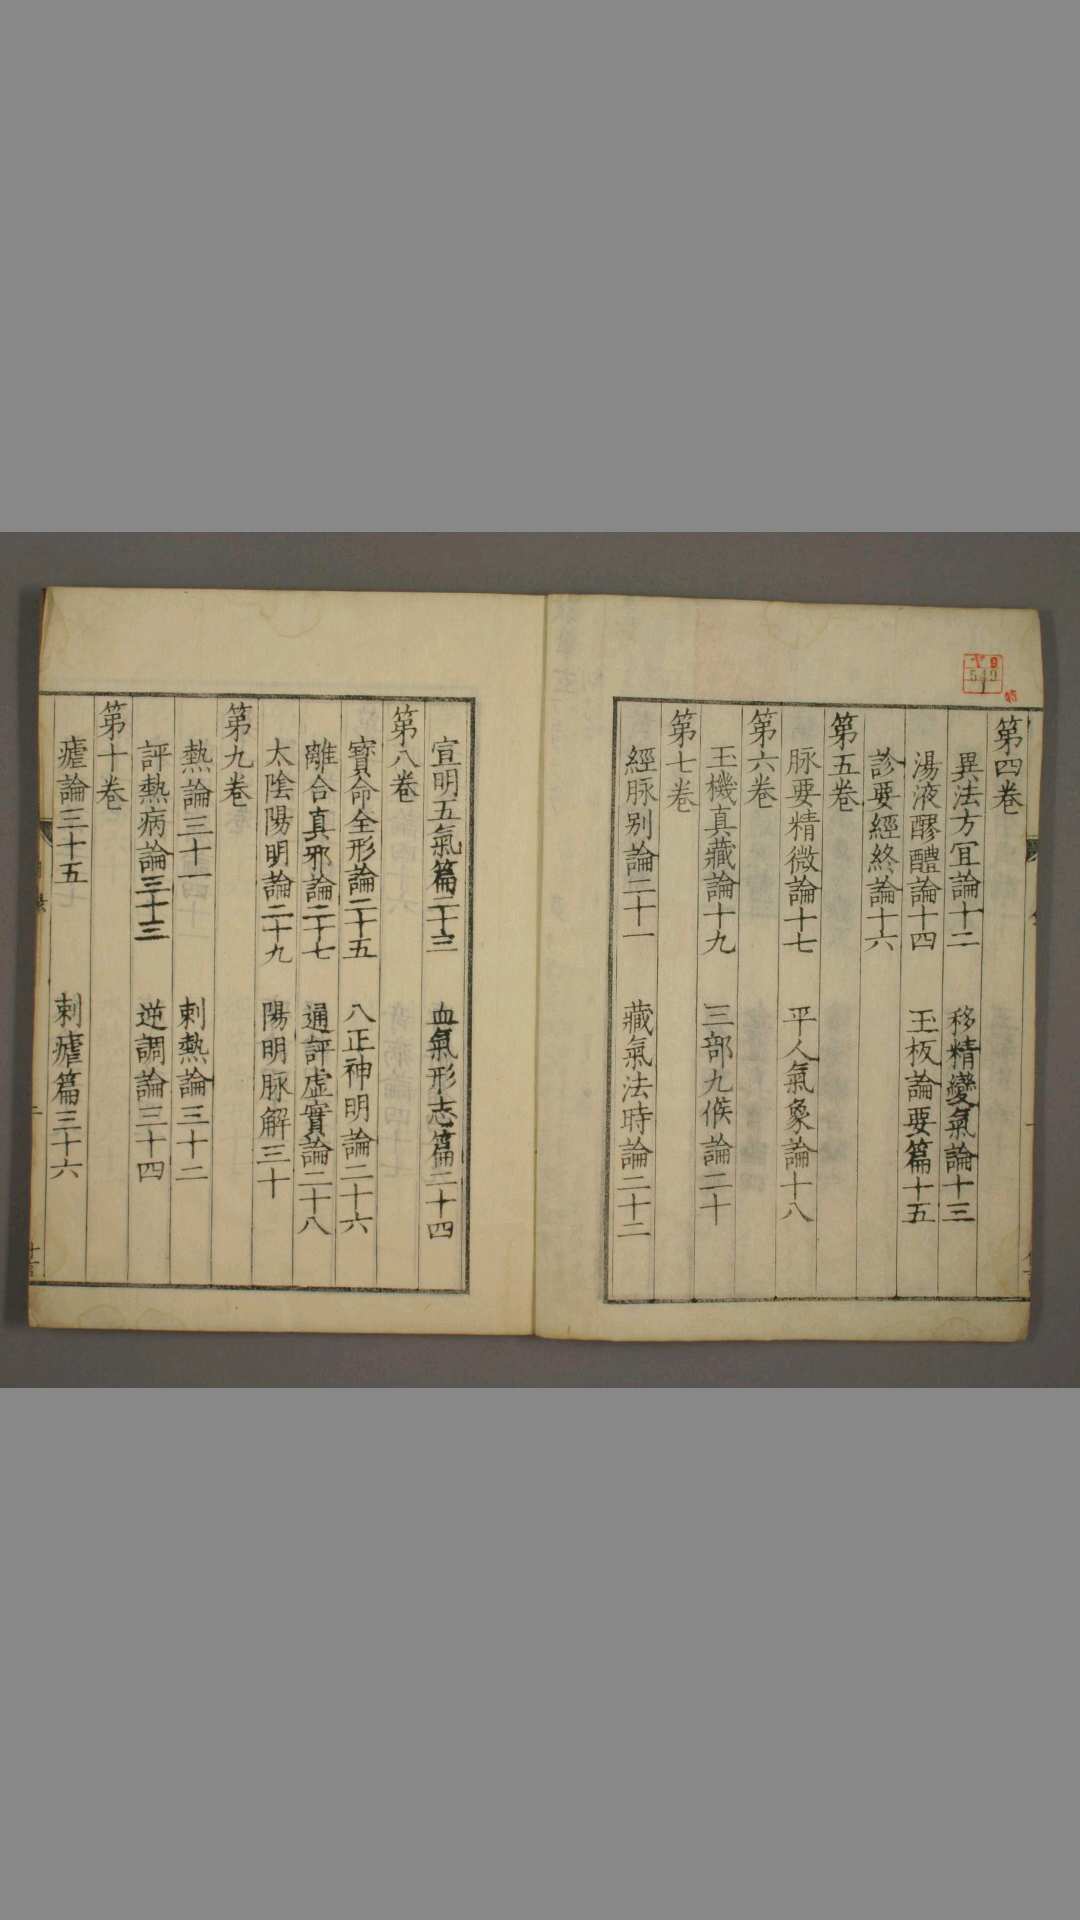 第四卷
異法方宜論十二　移精變氣論十三
湯液醪醴論十四　玉板論要篇十五
診要經終論十六
第五卷
脉要精微論十七　平人氣象論十八
第六卷
玉機真藏論十九　三部九候論二十
第七卷
經脉别論二十一　藏氣法時論二十二
宣明五氣篇二十三　血氣形志篇二十四
第八卷
寳命全形論二十五　八正神明論二十六
離合真邪論二十七　通評虛實論二十八
太陰陽明論二十九　陽明脉解三十
第九卷
熱論三十一　刺熱論三十二
評熱病論三十三　逆調論三十四
第十卷
瘧論三十五　刺瘧篇三十六
549
1